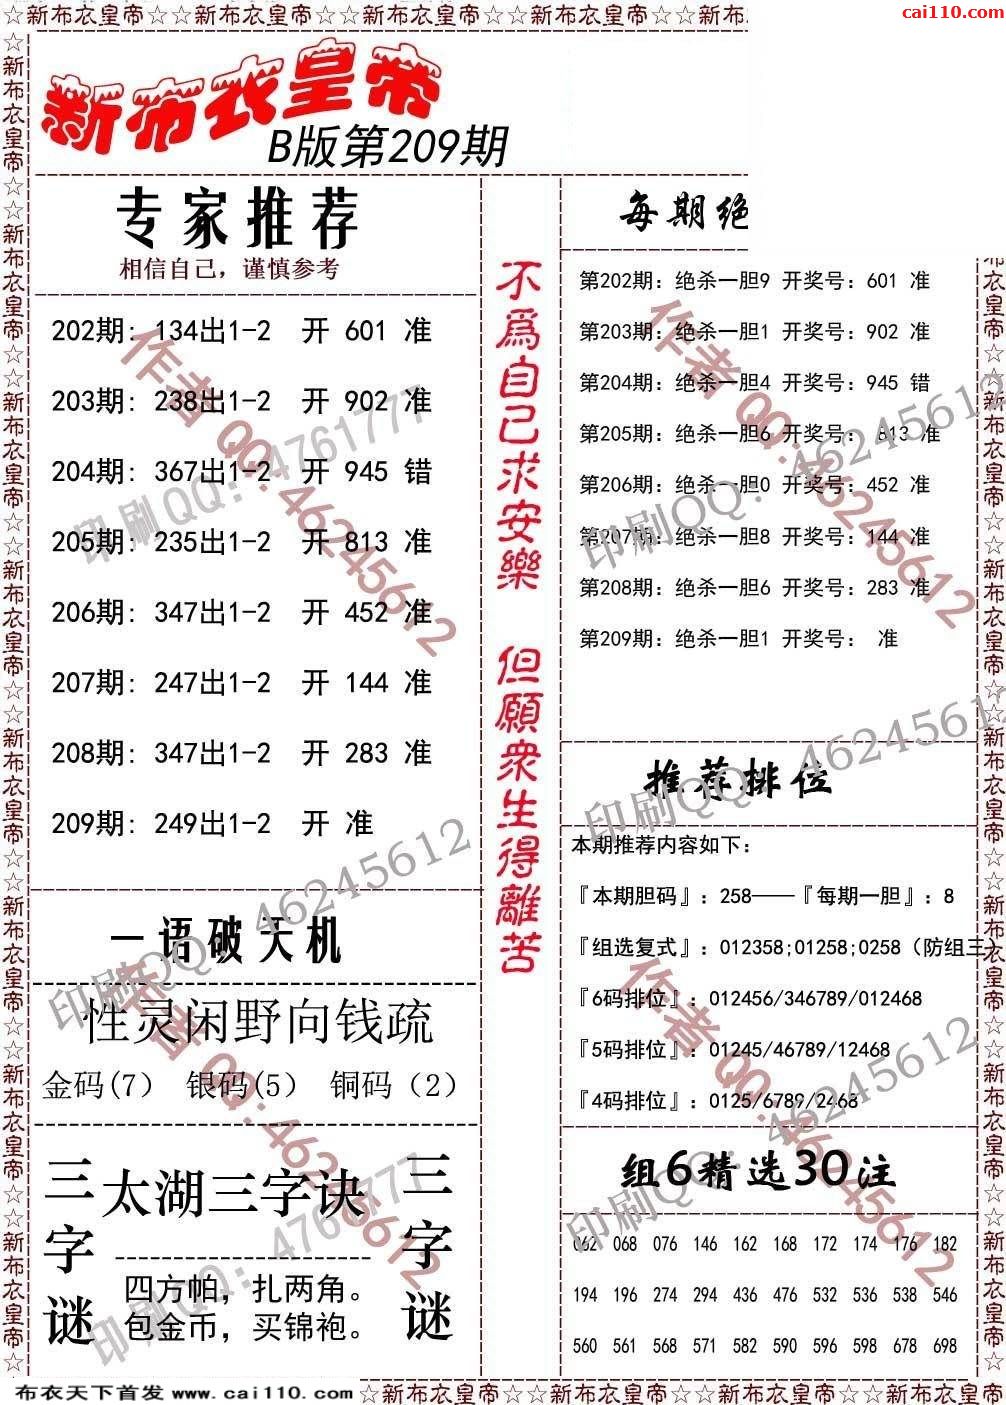 ☆新布衣皇帝☆☆新布衣皇帝☆☆新布衣皇帝☆☆新布衣皇帝☆☆新布
cai110.com
新布衣皇帝
B版第209期
专家推荐
相信自己，谨慎参考
202期: 134出1-2 开 601 准
203期: 238出1-2 开 902 准
204期: 367出1-2 开 945 错
205期: 235出1-2 开 813 准
206期: 347出1-2 开 452 准
207期: 247出1-2 开 144 准
208期: 347出1-2 开 283 准
209期: 249出1-2 开 准
一语破天机
性灵闲野向钱疏
金码(7) 银码(5) 铜码（2）
三字谜
太湖三字诀
四方帕，扎两角。
包金币，买锦袍。
三字谜
不爲自己求安樂
但願衆生得離苦
每期绝
第202期: 绝杀一胆9 开奖号: 601 准
第203期: 绝杀一胆1 开奖号: 902 准
第204期: 绝杀一胆4 开奖号: 945 错
第205期: 绝杀一胆6 开奖号: 813 准
第206期: 绝杀一胆0 开奖号: 452 准
第207期: 绝杀一胆8 开奖号: 144 准
第208期: 绝杀一胆6 开奖号: 283 准
第209期: 绝杀一胆1 开奖号: 准
推荐排位
本期推荐内容如下:
『本期胆码』: 258——『每期一胆』: 8
『组选复式』: 012358;01258;0258（防组三）
『6码排位』: 012456/346789/012468
『5码排位』: 01245/46789/12468
『4码排位』: 0125/6789/2468
组6精选30注
062 068 076 146 162 168 172 174 176 182
194 196 274 294 436 476 532 536 538 546
560 561 568 571 582 590 596 598 678 698
作者 QQ:46245612
印刷QQ: 4761777
作者 QQ:46245612
印刷QQ: 46245612
印刷QQ: 46245612
印刷QQ: 46245612
作者 QQ:46245612
印刷QQ: 4761777
作者 QQ:46245612
印刷QQ: 46245612
布衣天下首发 www.cai110.com ☆新布衣皇帝☆☆新布衣皇帝☆☆新布衣皇帝☆☆新布衣皇帝☆